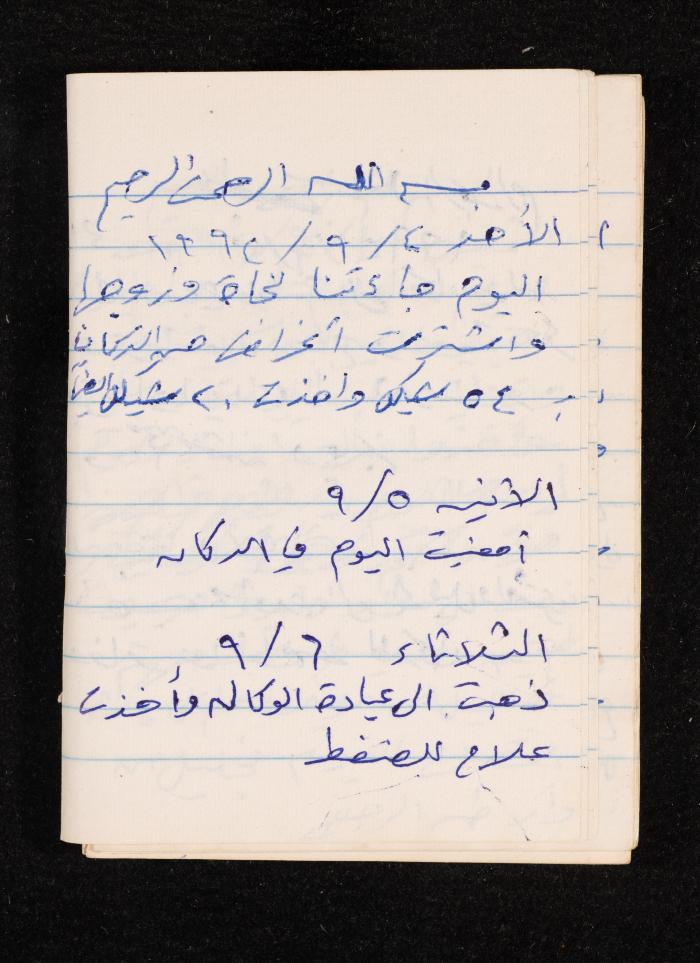 بسم الله الرحمن الرحيم
الأحد ٤/٩/١٩٩٤
اليوم جاءتنا نجاة وزوجها
واشترت أغراض من الدكان
بـ ٥٤ شيكل وأخذت ٢٠ شيكل ايضاً
الاثنين ٥/٩
أمضيت اليوم في الدكان
الثلاثاء ٦/٩
ذهبت الى عيادة الوكاله وأخذت
علاج للضغط